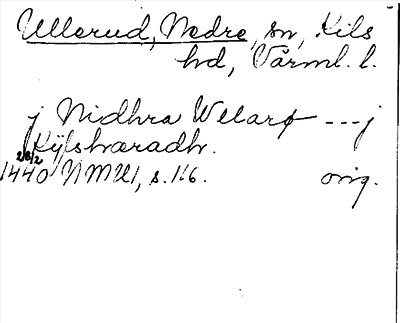 Ullerud, Nedre, sn, Kils
hd, Värml. l.
j Nidhra Wllarø --- j
Kÿlshæradh.
28/2
1440 NMU1, s. 116. orig.